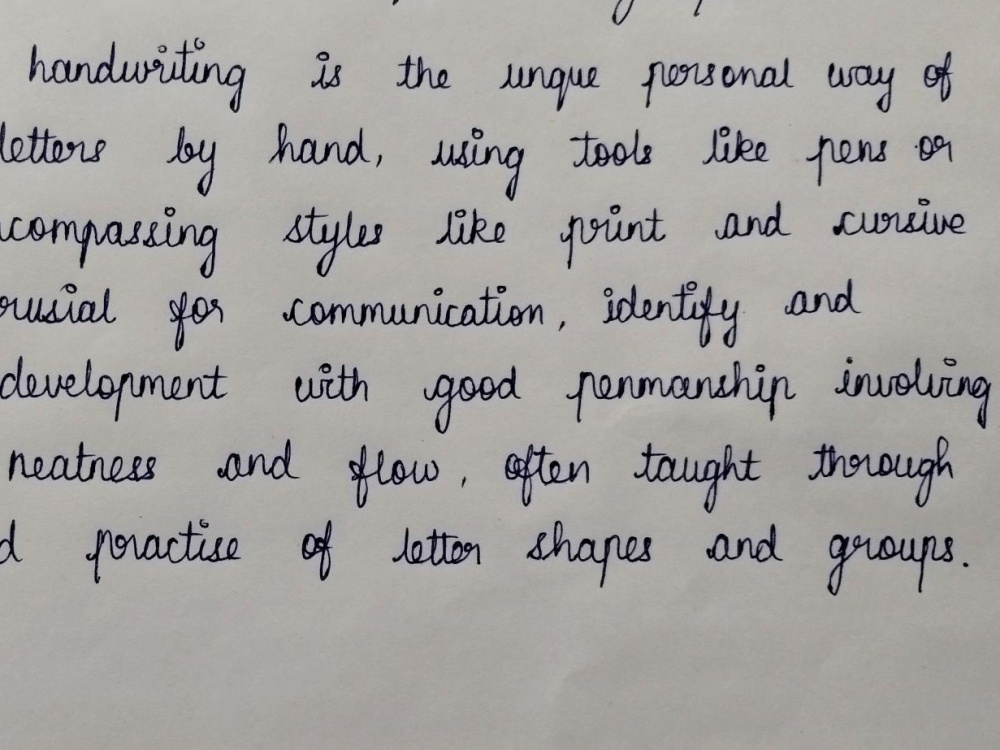 handwriting is the unque personal way of
letters by hand, using tools like pens or
ncompassing styles like print and cursive
rusial for communication, identify and
development with good penmanship involving
neatness and flow, often taught through
d practise of letter shapes and groups.